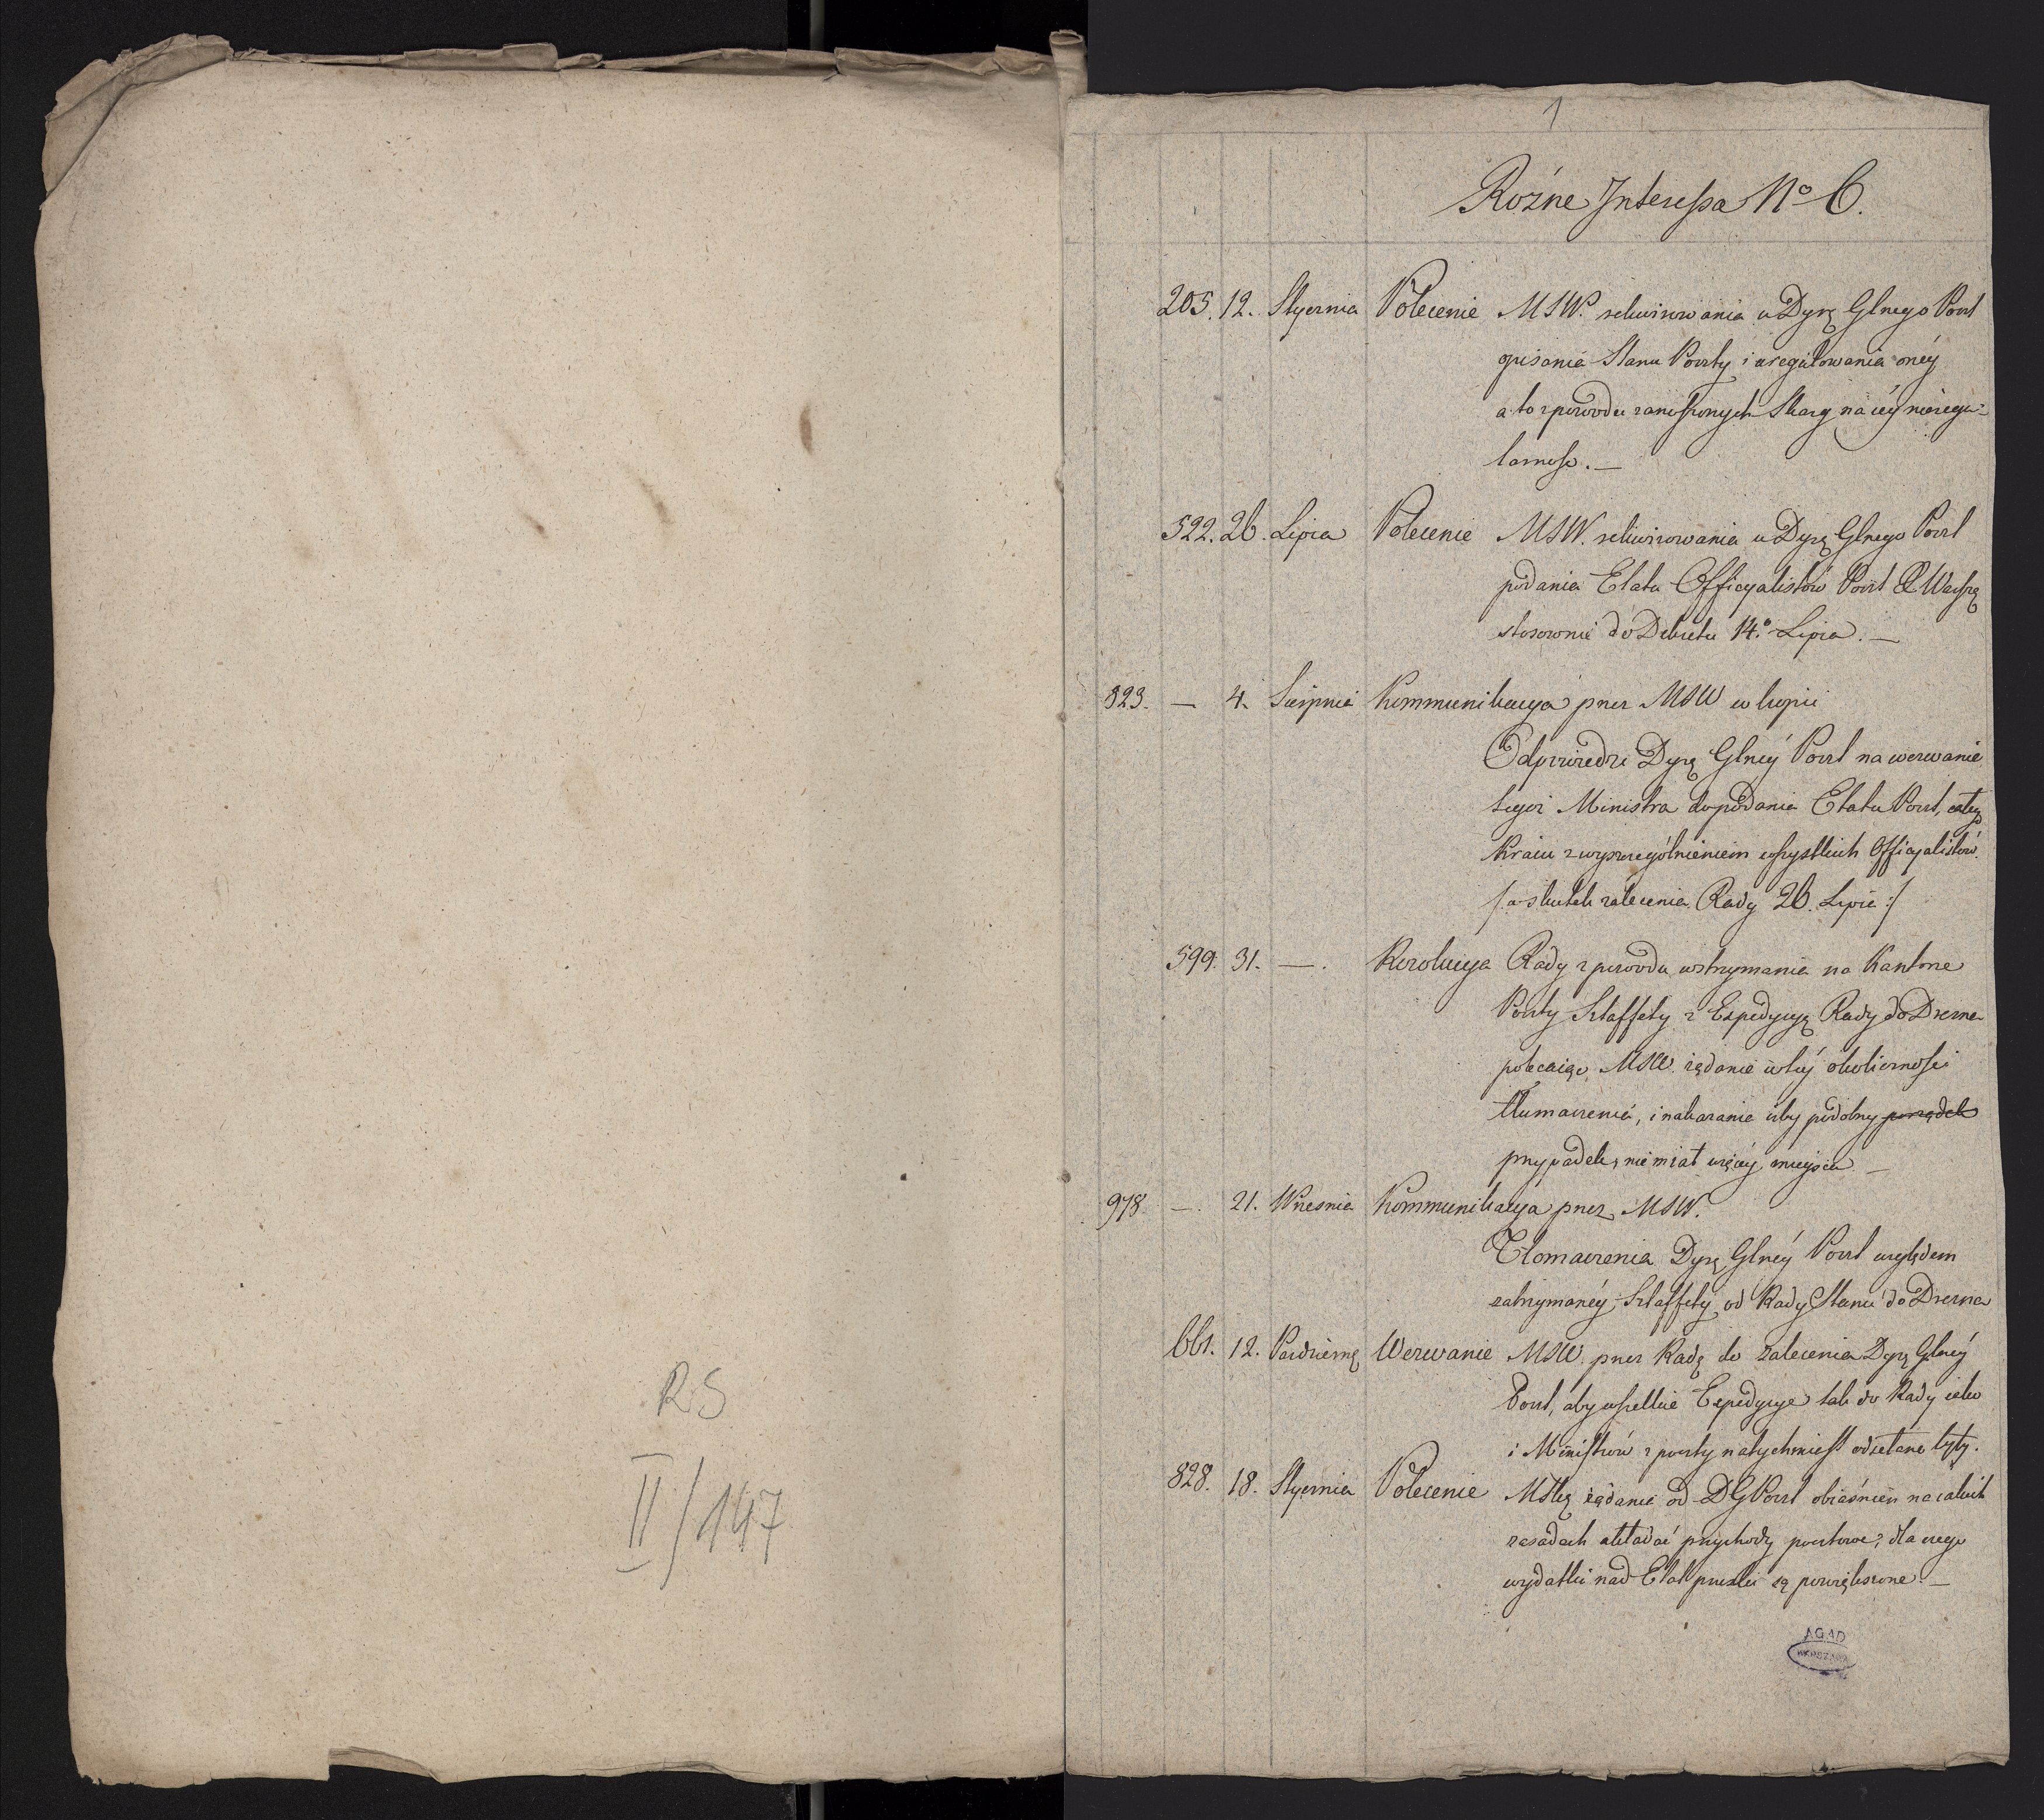 RS
II/147
1
Rożne Interessa No 6.
205. 12. Stycznia Polecenie MSW. rekwirowania u Dyrę Glnego Poczt
opisania Stanu Poczty i uregulowania onéy
a to z powodu zanoszonych Skarg na iéy nieregu=
larność. —
522. 26. Lipca Polecenie MSW. rekwirowania u Dyrę Glnego Poczt
podania Etatu Officyalistów Poczt X Warszę
stosownie do Dekretu 14.o Lipca. —
823. — 4. Sierpnia Kommunikacya przez MSW w kopii
Odpowiedzi Dyrę Glnéy Poczt na wezwanie
tegoż Ministra do podania Etatu Poczt, całego
Kraiu z wyszczególnieniem wszystkich Officyalistów
/: a skutek zalecenia Rady 26. Lipca :/
599. 31. — . Rezolucya Rady z powodu wstrzymania na Kantorze
Poczty Sztaffety z Expedycyą Rady do Drezna
polecaiąc MSW. żądanie w téy okoliczności
tłumaczenia, i nakazanie iżby podobny porządek
przypadek, nie miał więcéy mieysca. —
978. — . 21. Września Kommunikacya przez MSW.
Tłomaczenia Dyrę Glnéy Poczt względem
zatrzymanéy Sztaffety od Rady Stanu do Drezna
661. 12. Październę Wezwanie MSW. przez Radę do zalecenia Dyrę Glnéy
Poczt, aby wszelkie Expedycye tak do Rady iako
i Ministrów z poczty natychmiast odsełane były.
828. 18. Stycznia Polecenie żądanie od DGPoczt obiaśnień na iakich
zasadach układać przychody pocztowe, dla czego
wydatki nad Etat przeszłe są powiększone. —
AGAD
WARSZAWA